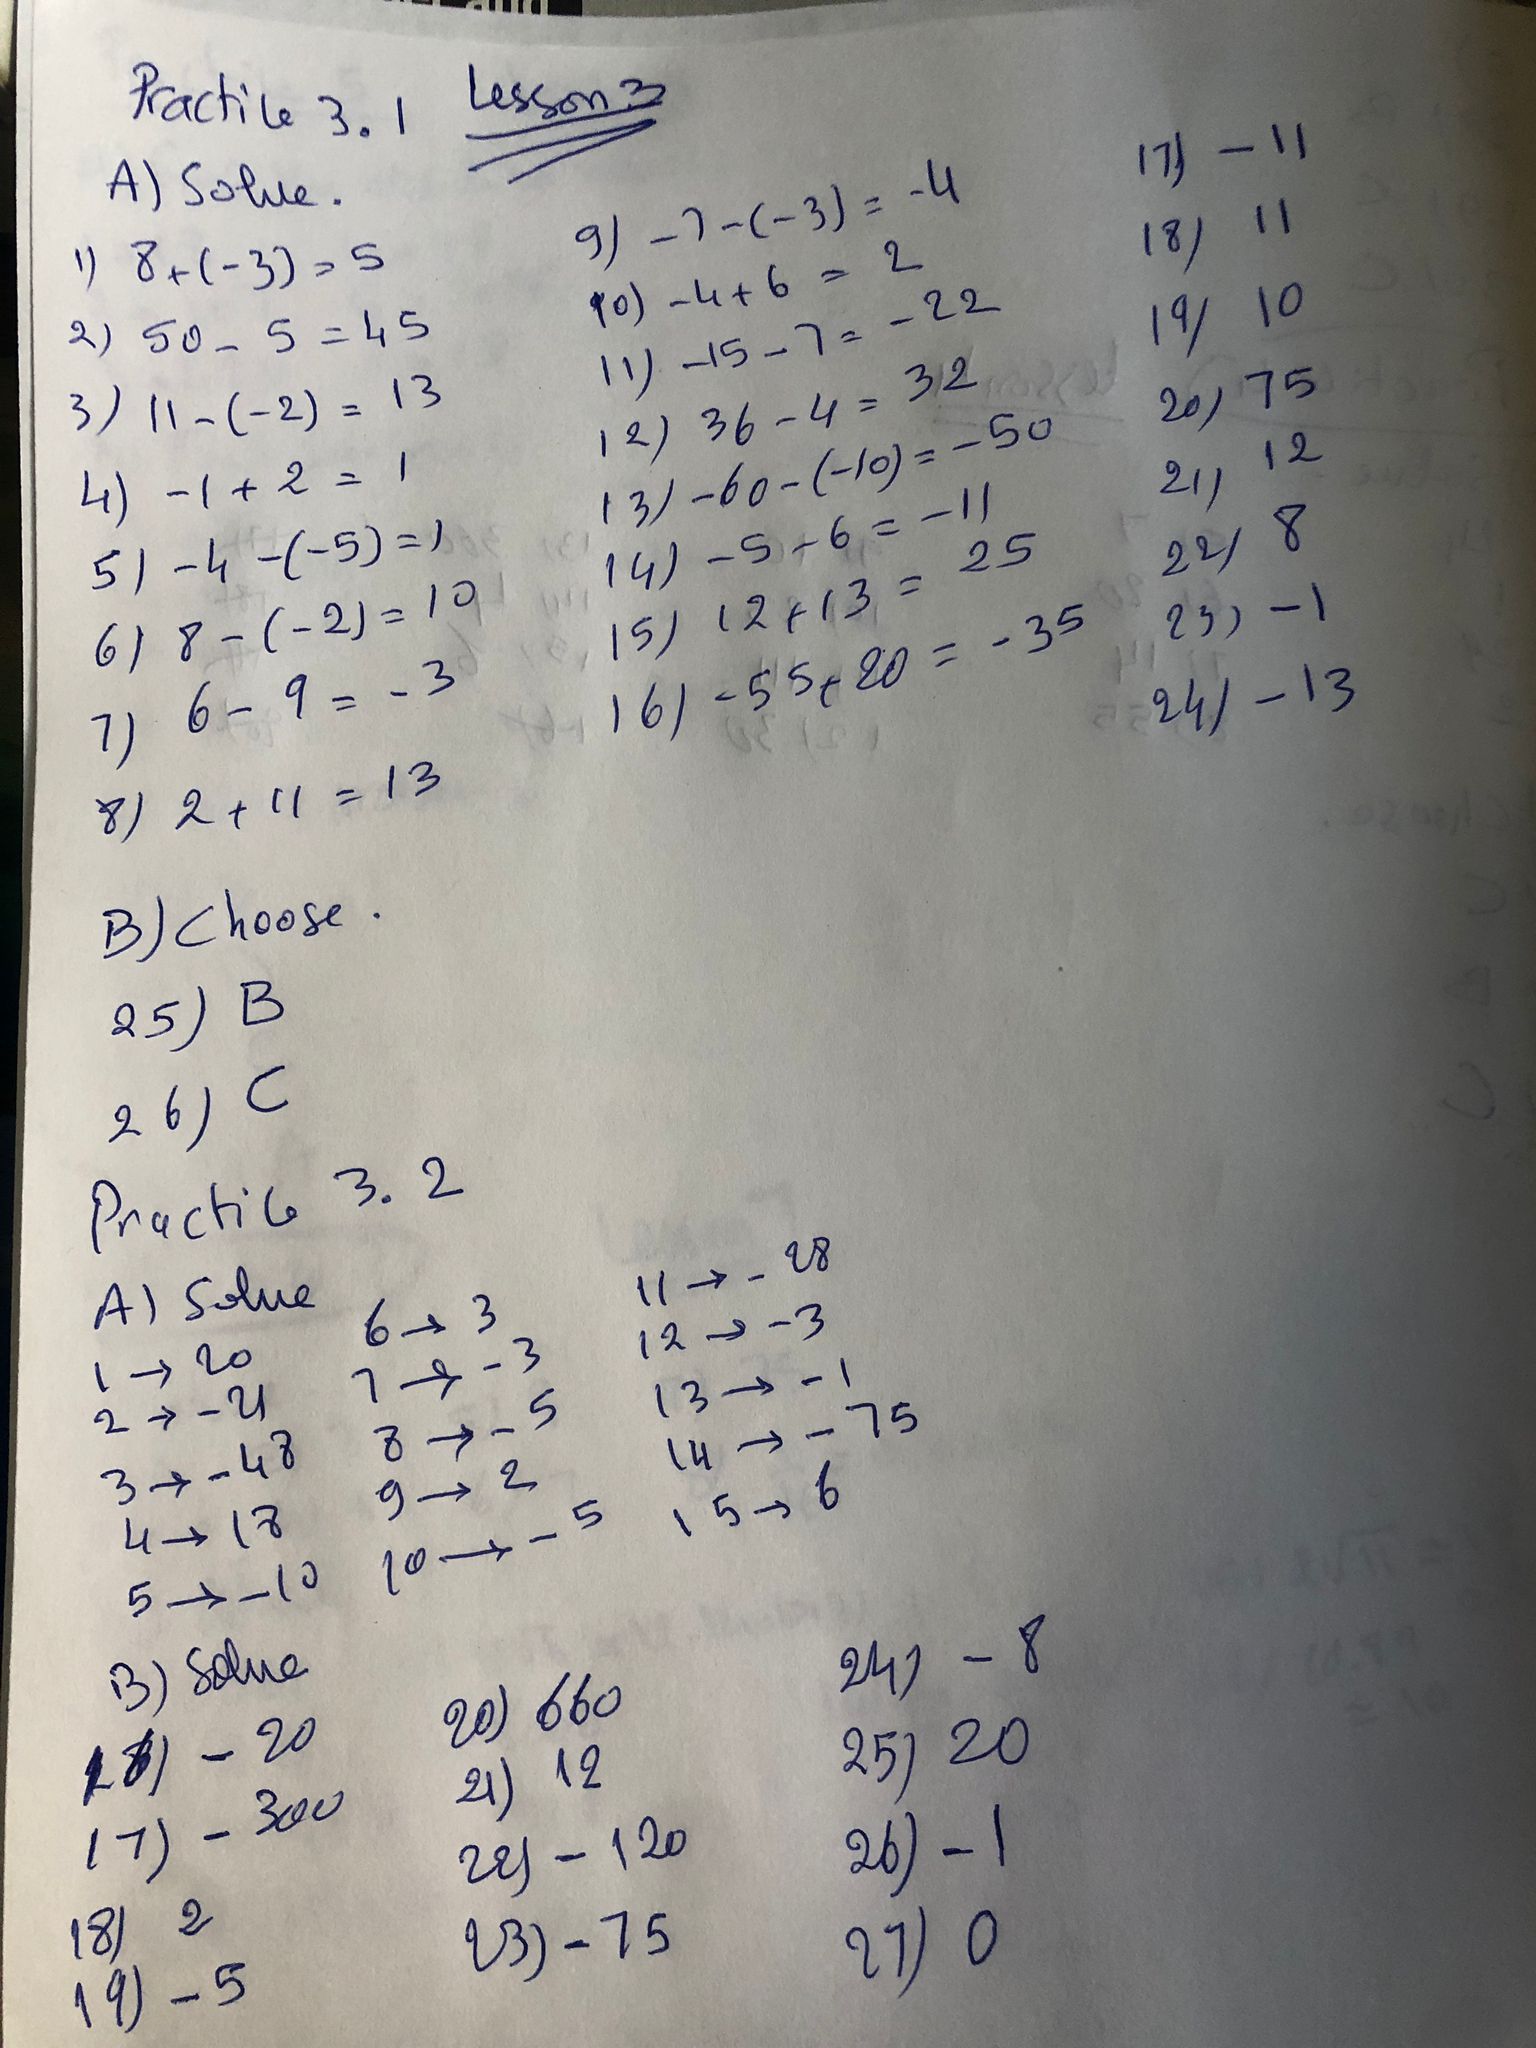 Practice 3.1 Lesson 3
A) Solve.
1) 8+(-3) = 5
2) 50 - 5 = 45
3) 11-(-2) = 13
4) -1 + 2 = 1
5) -4 -(-5) = 1
6) 8-(-2) = 10
7) 6 - 9 = -3
8) 2 + 11 = 13
9) -7-(-3) = -4
10) -4+6 = 2
11) -15-7 = -22
12) 36-4 = 32
13) -60-(-10) = -50
14) -5-6 = -11
15) 12+13 = 25
16) -55+20 = -35
17) -11
18) 11
19) 10
20) 75
21) 12
22) 8
23) -1
24) -13
B) Choose.
25) B
26) C
Practice 3.2
A) Solve
1 → 20
2 → -21
3 → -48
4 → 18
5 → -10
6 → 3
7 → -3
8 → -5
9 → 2
10 → -5
11 → -28
12 → -3
13 → -1
14 → -75
15 → 6
B) Solve
16) -20
17) -300
18) 2
19) -5
20) 660
21) 12
22) -120
23) -75
24) -8
25) 20
26) -1
27) 0